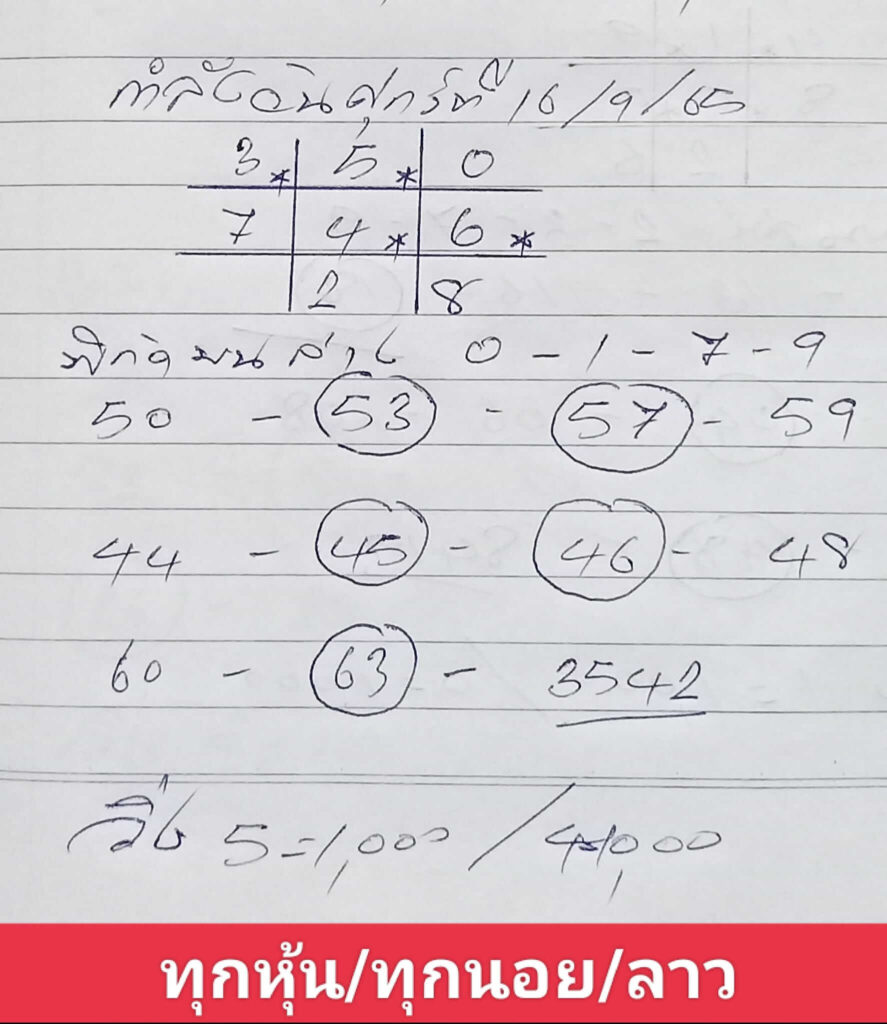 กำลังวันศุกร์ที่ 16/9/65
3* 5* 0
7 4* 6*
2 8
พิกัดบนล่าง 0-1-7-9
50 - 53 - 57 - 59
44 - 45 - 46 - 48
60 - 63 - 3542
วิ่ง 5=1,000 / 4=1,000
ทุกหุ้น/ทุกนอย/ลาว